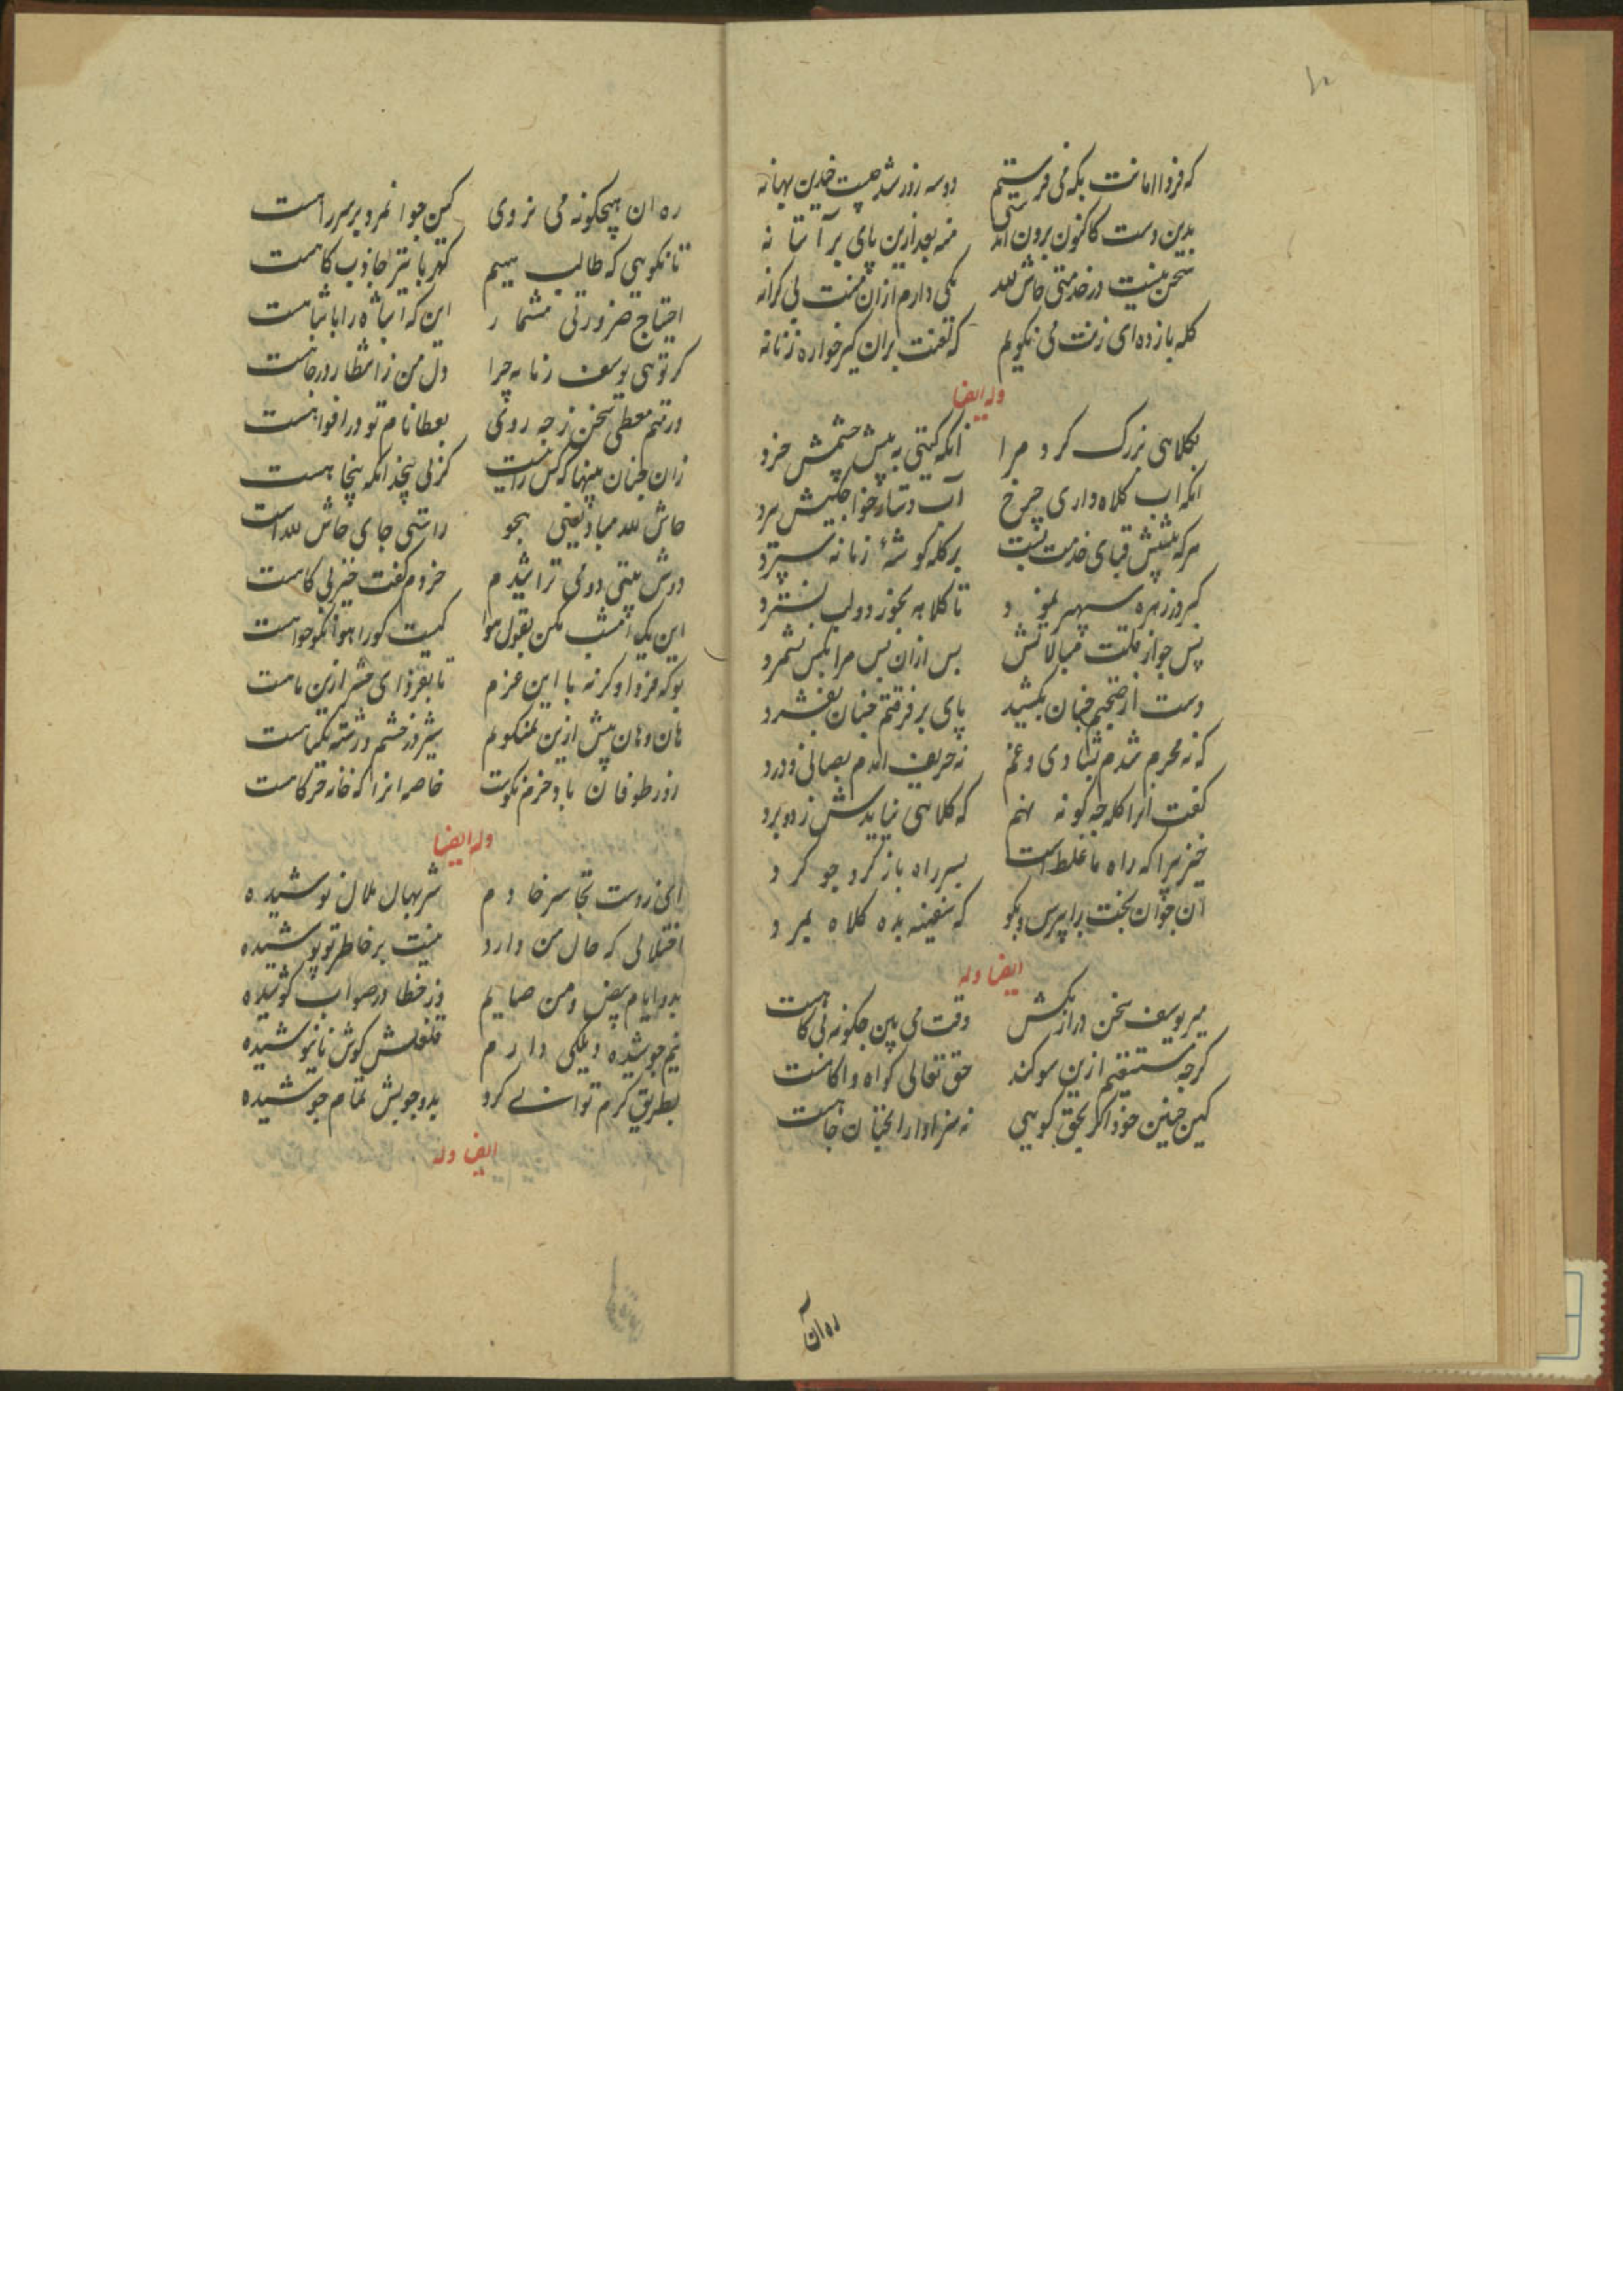 ۱۰
که فردا امانت بکه می فرستیم دو سه روز شد چیست چندین بهانه
بدین دست کاکنون برون آمدستی منه بعد ازین پای بر آستانه
سخن نیست در خدمتی حاش لله یکی دارم از آن منت بی کرانه
کله بازده ای زنت می نکویم که لعنت بران کیرخواره زنانه
وله ایضا
بکلاهی بزرک کرد مرا آنکه کیتی به پیش چشمش خرد
انکه اب کلاه داری چرخ آب دستار خواجکیش ببرد
هرکه پیشش قبای خدمت بست بر کله کوشهٔ زمانه سپرد
کبر و زهره سپهر نمود تا کلاهه بجوز دولب بسترد
پس چو از فلت مبالاتش پس ازان پس مرا بکس نشمرد
دست از صحبتم چنان بکشید پای بر فرقتم چنان بفشرد
که نه محرم شدم بشادی و غم نه حریف امدم بصافی و درد
کفت انرا کله چکونه نهم که کلاهی نیایدش ز دو برد
خیز برا که راه ما غلط است بسر راه باز کرد چو کرد
آن جوان بخت را بپرس و بکو که سفینه بده کلاه ببرد
ایضا وله
میر یوسف سخن دراز مکش وقت می بین چکونه بی کاهست
کرچه مستغنیم ازین سوکند حق تعالی کواه و اکاهست
کین چنین جود اکر بحق کویی نه سزاوار انچنان جاهست
ره ان
ره ان هیچکونه می نروی کین جوانمرد بر سر راهست
تا نکویی که طالب سیم کهربا نیز جاذب کاهست
احتیاج ضرورتی مشمار این که انباشه را بانباهست
کر توئی یوسف زمانه چرا دل من ز انتظار در چاهست
ور منم معطی سخن ز چه روی بعطا نام تو در افواهست
زان چنان بیتها که کس را نیست کز پی پنج انکه پنجاهست
حاش لله مباد یعنی هجو راستی جای حاش لله است
دوش بیتی دو می تراشیدم خردم کفت خیز بی کاهست
این یک امشب مکن بقول هوا کیست کو را هوا نکو خواهست
بو که فردا وکرنه با این عزم تا بفردای حشر ازین ماهست
هان و هان بیش ازین نمی کویم شیر در خشم و رشته یکتاهست
روز طوفان باد خرم نکوست خاصه انرا که خانه خرکاهست
وله ایضا
ای ز دست تجاسر خادم شربهای ملال نوشیده
اختلالی که حال من دارد نیست بر خاطر تو پوشیده
بدو ایام بیض و من صایم وز خطا در صواب کوشیده
نیم جوشیده دیکی دارم قلقلش کوش نانیوشیده
بطریق کرم توانی کرد بدو چوبیش تمام جوشیده
ایضا وله